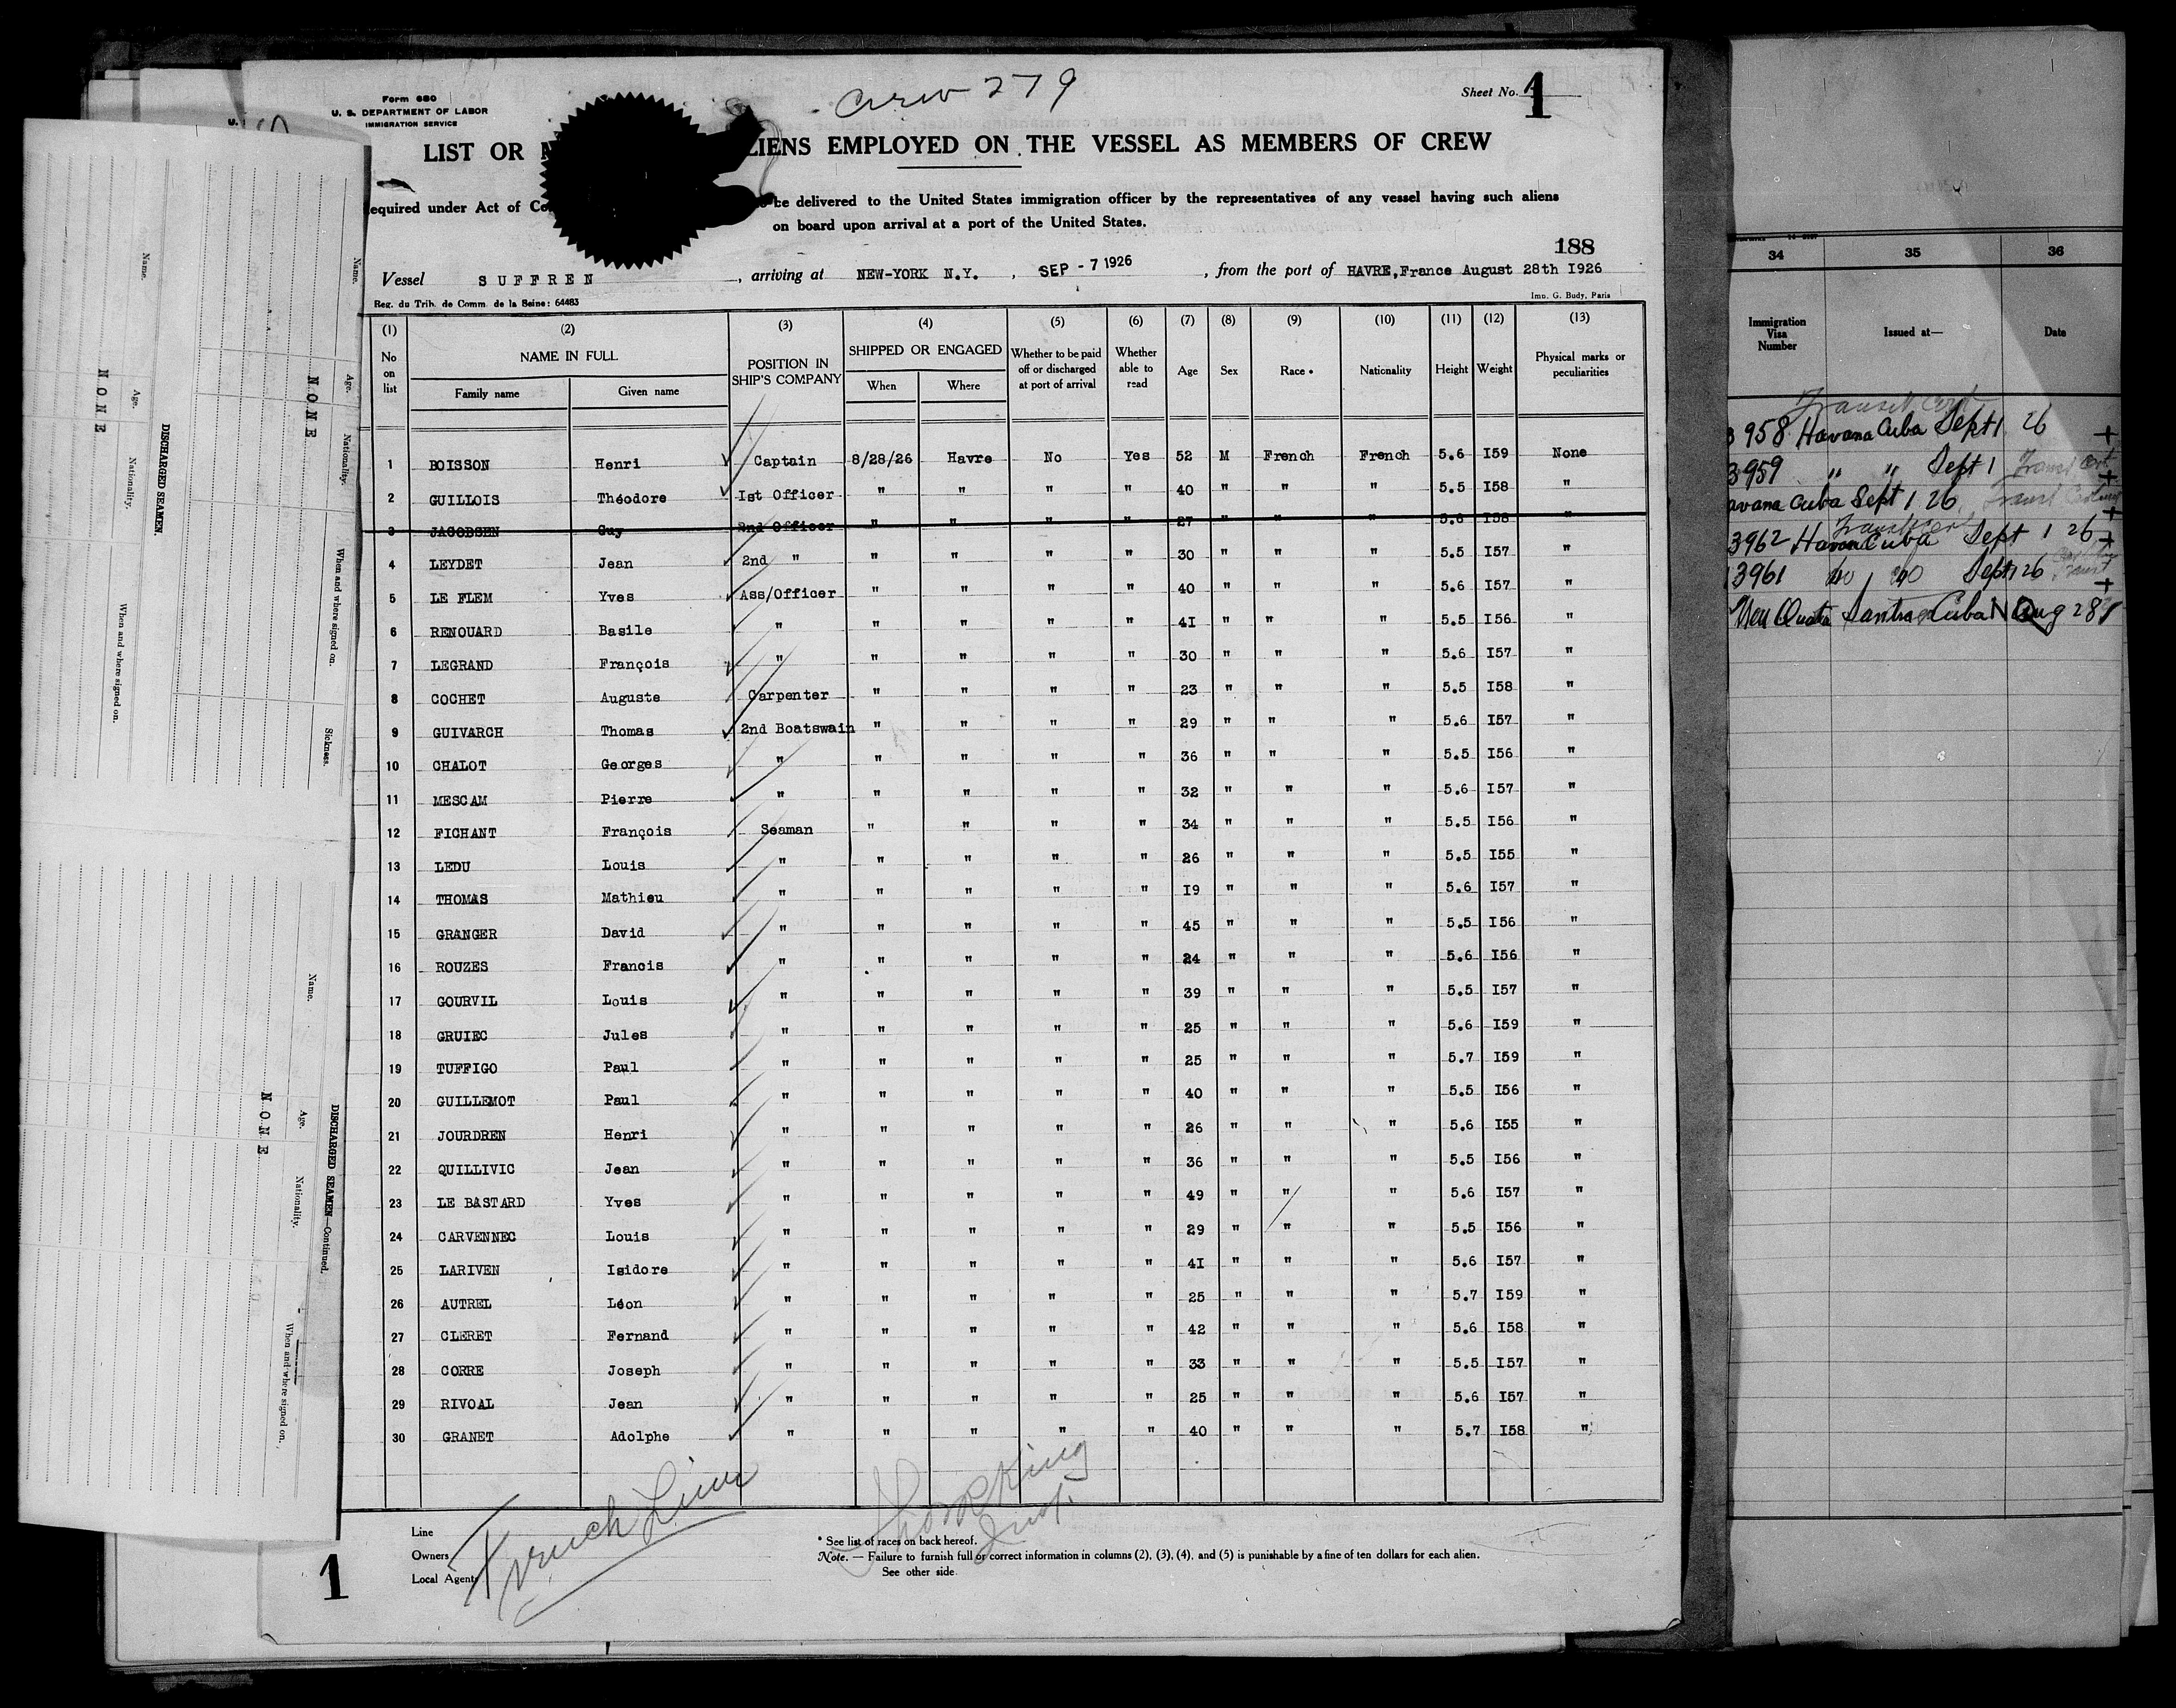 crew 279
Form 680
U. S. DEPARTMENT OF LABOR
IMMIGRATION SERVICE
Sheet No. 1
LIST OR ALIENS EMPLOYED ON THE VESSEL AS MEMBERS OF CREW
equired under Act of be delivered to the United States immigration officer by the representatives of any vessel having such aliens
on board upon arrival at a port of the United States.
188
Vessel SUFFREN , arriving at NEW-YORK N.Y. , SEP - 7 1926 , from the port of HAVRE,France August 28th I926
Reg. du Trib. de Comm. de la Seine: 64483
Imp. G. Budy, Paris
(1) (2) (3) (4) (5) (6) (7) (8) (9) (10) (11) (12) (13)
No on list NAME IN FULL Family name Given name POSITION IN SHIP'S COMPANY SHIPPED OR ENGAGED When Where Whether to be paid off or discharged at port of arrival Whether able to read Age Sex Race * Nationality Height Weight Physical marks or peculiarities
1 BOISSON Henri Captain 8/28/26 Havre No Yes 52 M French French 5.6 I59 None
2 GUILLOIS Théodore Ist Officer " " " " 40 " " " 5.5 I58 "
3 JACOBSEN Guy 2nd Officer " " " " 27 " " " 5.6 I58 "
4 LEYDET Jean 2nd " " " " " 30 " " " 5.5 I57 "
5 LE FLEM Yves Ass/Officer " " " " 40 " " " 5.6 I57 "
6 RENOUARD Basile " " " " " 4I " " " 5.5 I56 "
7 LEGRAND François " " " " " 30 " " " 5.6 I57 "
8 COCHET Auguste Carpenter " " " " 23 " " " 5.5 I58 "
9 GUIVARCH Thomas 2nd Boatswain " " " " 29 " " " 5.6 I57 "
10 CHALOT Georges " " " " " 36 " " " 5.5 I56 "
11 MESCAM Pierre " " " " " 32 " " " 5.6 I57 "
12 FICHANT François Seaman " " " " 34 " " " 5.5 I56 "
13 LEDU Louis " " " " " 26 " " " 5.5 I55 "
14 THOMAS Mathieu " " " " " I9 " " " 5.6 I57 "
15 GRANGER David " " " " " 45 " " " 5.5 I56 "
16 ROUZES Francis " " " " " 24 " " " 5.6 I56 "
17 GOURVIL Louis " " " " " 39 " " " 5.5 I57 "
18 GRUIEC Jules " " " " " 25 " " " 5.6 I59 "
19 TUFFIGO Paul " " " " " 25 " " " 5.7 I59 "
20 GUILLEMOT Paul " " " " " 40 " " " 5.5 I56 "
21 JOURDREN Henri " " " " " 26 " " " 5.6 I55 "
22 QUILLIVIC Jean " " " " " 36 " " " 5.5 I56 "
23 LE BASTARD Yves " " " " " 49 " " " 5.6 I57 "
24 CARVENNEC Louis " " " " " 29 " " " 5.5 I56 "
25 LARIVEN Isidore " " " " " 4I " " " 5.6 I57 "
26 AUTREL Léon " " " " " 25 " " " 5.7 I59 "
27 CLERET Fernand " " " " " 42 " " " 5.6 I58 "
28 CORRE Joseph " " " " " 33 " " " 5.5 I57 "
29 RIVOAL Jean " " " " " 25 " " " 5.6 I57 "
30 GRANET Adolphe " " " " " 40 " " " 5.7 I58 "
Line
Owners
Local Agents
French Line
* See list of races on back hereof.
Note. — Failure to furnish full or correct information in columns (2), (3), (4), and (5) is punishable by a fine of ten dollars for each alien.
See other side
1
Name. Age. Nationality. When and where signed on.
NONE
DISCHARGED SEAMEN.
Name. Age. Nationality. When and where signed on. Sickness.
NONE
Name. Age. Nationality. When and where signed on.
NONE
DISCHARGED SEAMEN—Continued.
34 35 36
Immigration Visa Number Issued at— Date
Transit Cert
3958 Havana Cuba Sept 1 26 +
3959 " " Sept 1 Transit Cert +
avana Cuba Sept 1 26 Transit +
Transit Cert
3962 Havana Cuba Sept 1 26 +
3961 do do Sept 1 26 Transit +
Non Quota Santiago Cuba NQ Aug 28